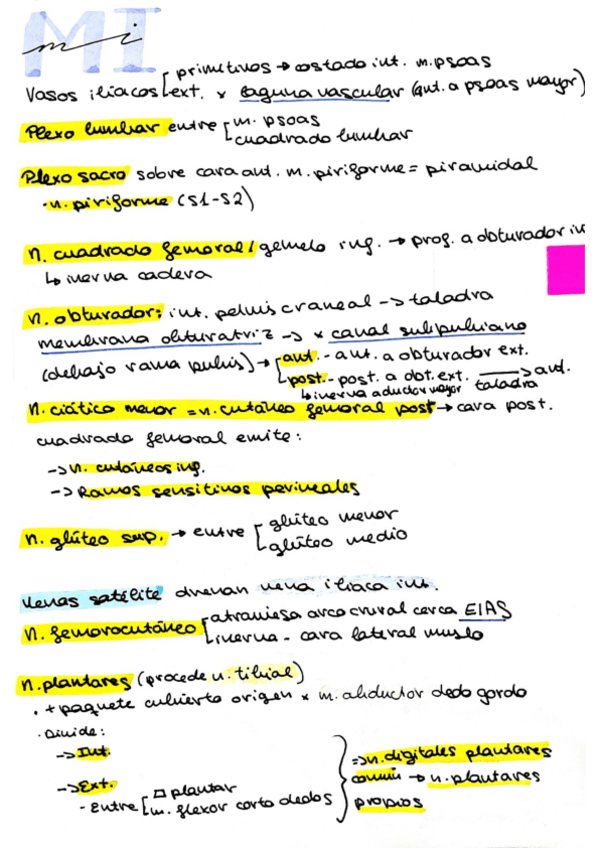 MI
mi
primitivos → costado int. m. psoas
Vasos ilíacos ext. x laguna vascular (ant. a psoas mayor)
Plexo lumbar entre m. psoas
cuadrado lumbar
Plexo sacro sobre cara ant. m. piriforme = piramidal
- n. piriforme (S1-S2)
n. cuadrado femoral / gemelo inf. → prof. a obturador in
↳ inerva cadera
n. obturador: int. pelvis craneal -> taladra
membrana obturatriz -> x canal subpubiano
(debajo rama pubis) → ant. - ant. a obturador ext.
post. - post. a obt. ext. → ant.
↳ inerva aductor mayor taladra
n. ciático menor = n. cutáneo femoral post → cara post.
cuadrado femoral emite:
-> n. cutáneos inf.
-> Ramos sensitivos perineales
n. glúteo sup. → entre glúteo menor
glúteo medio
Venas satélite drenan vena ilíaca int.
n. femorocutáneo atraviesa arco crural cerca EIAS
inerva - cara lateral muslo
n. plantares (procede n. tibial)
. + paquete cubierto origen x m. abductor dedo gordo
. Divide:
-> Int.
-> Ext.
- Entre □ plantar
m. flexor corto dedos
=> n. digitales plantares
común → n. plantares
propios